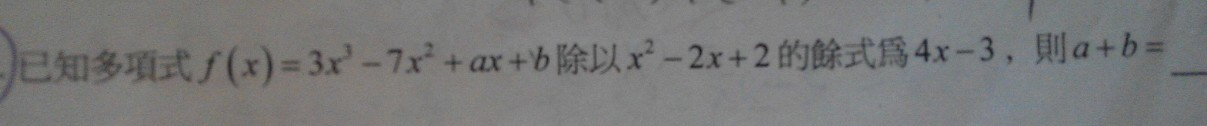 已知多項式 f(x)=3x³-7x²+ax+b 除以 x²-2x+2 的餘式爲 4x-3，則 a+b=